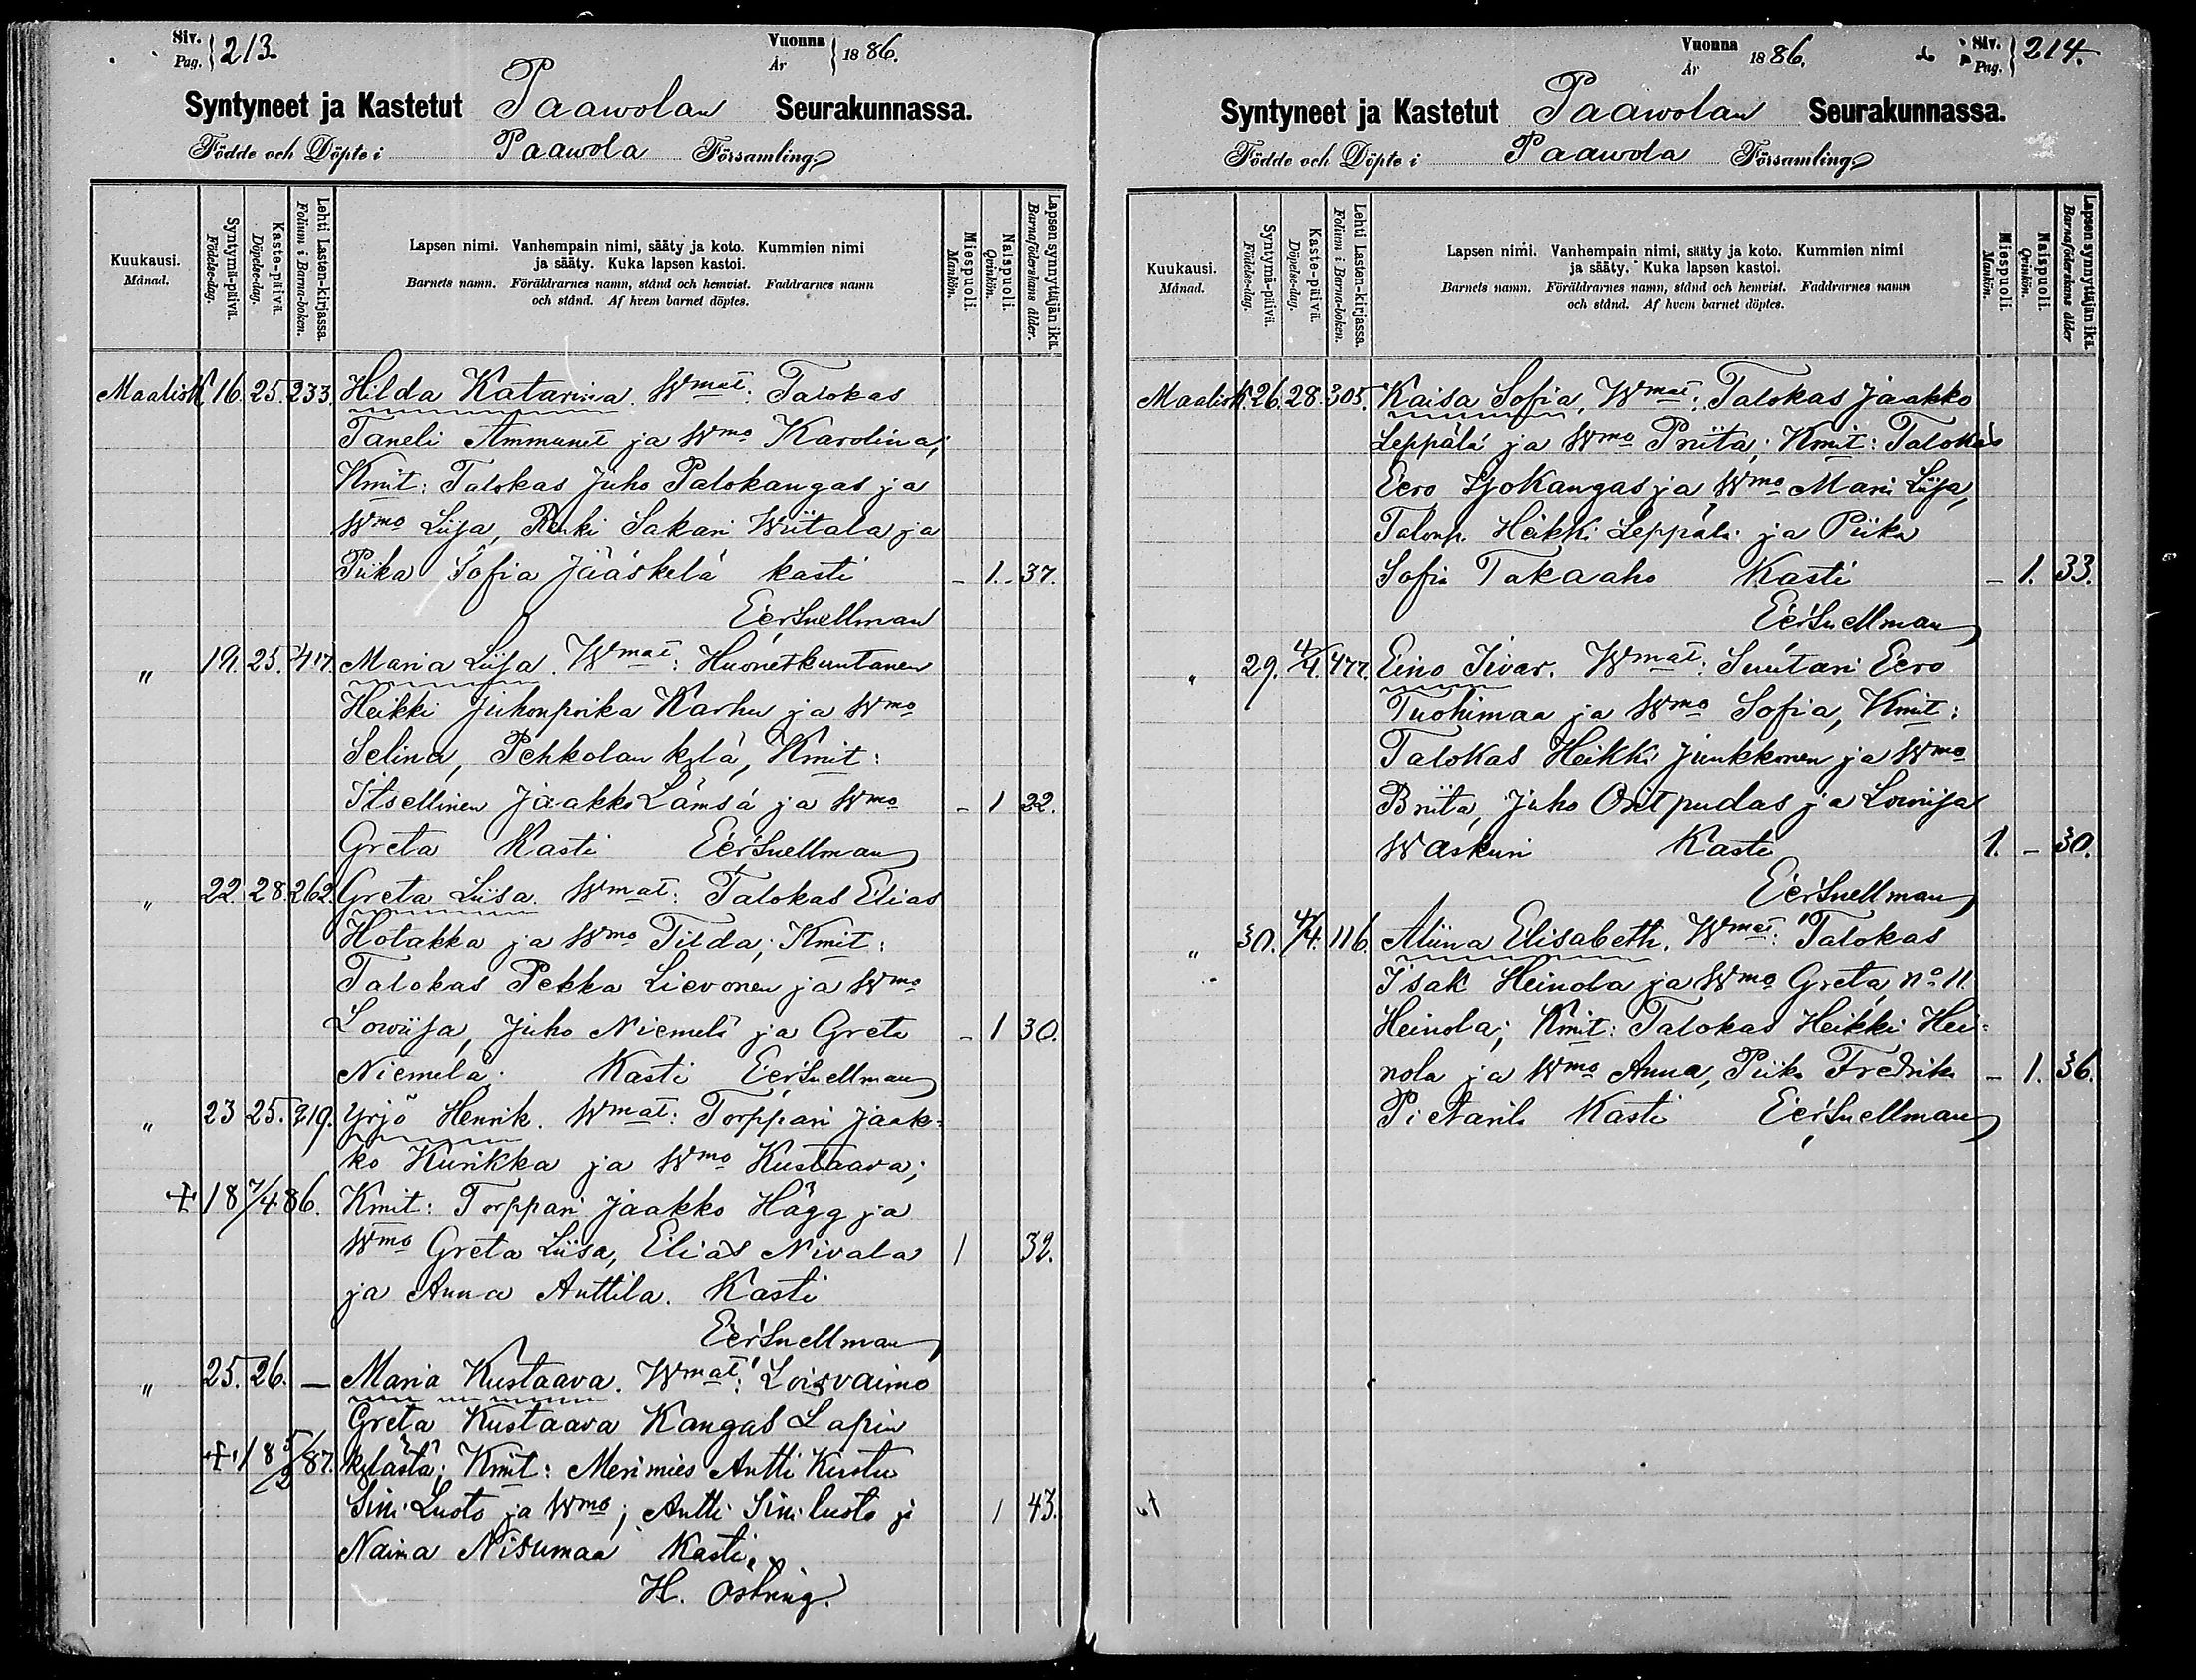 Siv. Pag. 213.
Vuonna År 1886.
Syntyneet ja Kastetut Paawolan Seurakunnassa.
Födde och Döpte i Paawola Församling
Kuukausi. Månad.
Syntymä-päivä. Födelse-dag.
Kaste-päivä. Döpelse-dag.
Lehti Lasten-kirjassa. Folium i Barna-boken.
Lapsen nimi. Vanhempain nimi, sääty ja koto. Kummien nimi
ja sääty. Kuka lapsen kastoi.
Barnets namn. Föräldrarnes namn, stånd och hemvist. Faddrarnes namn
och stånd. Af hvem barnet döptes.
Miespuoli. Mankön.
Naispuoli. Qvinkön.
Lapsen synnyttäjän ikä. Barnaföderskans ålder.
Maalisk. 16. 25. 233. Hilda Katarina. Wmat: Talokas
Taneli Ammunet ja Wmo Karolina;
Kmit: Talokas Juho Palokangas ja
Wmo Liisa, Renki Sakari Wiitala ja
Piika Sofia Jääskelä kasti - 1. 37.
EerSnellman
" 19. 25. 417. Maria Liisa. Wmat: Huonetkuntanen
Heikki Juhonpoika Karhu ja Wmo
Selina, Pehkolan kylä, Kmit:
Itsellinen Jaakko Lämsä ja Wmo - 1 22.
Greta Kasti EerSnellman
" 22. 28. 262. Greta Liisa. Wmat: Talokas Elias
Hotakka ja Wmo Tilda; Kmit:
Talokas Pekka Lievonen ja Wmo
Lowiisa, Juho Niemelä ja Greta - 1 30.
Niemelä. Kasti EerSnellman
" 23 25. 219. Yrjö Henrik. Wmat: Torppari Jaak-
ko Kurikka ja Wmo Kustaava;
+ 18 7/4 86. Kmit: Torppari Jaakko Hägg ja
Wmo Greta Liisa, Elias Nivala 1 32.
ja Anna Anttila. Kasti
EerSnellman
" 25. 26. — Maria Kustaava. Wmat: Loisvaimo
Greta Kustaava Kangas Lapin
+ 18 5/2 87. kylästä; Kmit: Merimies Antti Kustu
Sini Luoto ja Wmo; Antti Siniluoto ja 1 43.
Naima Nisumaa Kasti
H. Östring.
Vuonna År 1886.
Siv. Pag. 214.
Syntyneet ja Kastetut Paawolan Seurakunnassa.
Födde och Döpte i Paawola Församling
Kuukausi. Månad.
Syntymä-päivä. Födelse-dag.
Kaste-päivä. Döpelse-dag.
Lehti Lasten-kirjassa. Folium i Barna-boken.
Lapsen nimi. Vanhempain nimi, sääty ja koto. Kummien nimi
ja sääty. Kuka lapsen kastoi.
Barnets namn. Föräldrarnes namn, stånd och hemvist. Faddrarnes namn
och stånd. Af hvem barnet döptes.
Miespuoli. Mankön.
Naispuoli. Qvinkön.
Lapsen synnyttäjän ikä. Barnaföderskans ålder
Maalisk. 26. 28. 305. Kaisa Sofia, Wmat: Talokas Jaakko
Leppälä ja Wmo Priita; Kmit: Talokas
Eero Isokangas ja Wmo Mari Liisa,
Talonp. Heikki Leppälä ja Piika
Sofia Takaaho Kasti - 1. 33.
EerSnellman
" 29. 4/4. 477. Eino Iivar. Wmat: Suutari Eero
Tuohimaa ja Wmo Sofia, Kmit:
Talokas Heikki Junkkonen ja Wmo
Briita, Juho Ontpudas ja Lowiisa
Waskuri Kasti 1. - 30.
EerSnellman
" 30. 4/4. 116. Aliina Elisabeth. Wmat: Talokas
Isak Heinola ja Wmo Greta, No 11.
Heinola; Kmit: Talokas Heikki Hei-
nola ja Wmo Anna, Piika Fredrika - 1. 36.
Pietarila Kasti EerSnellman